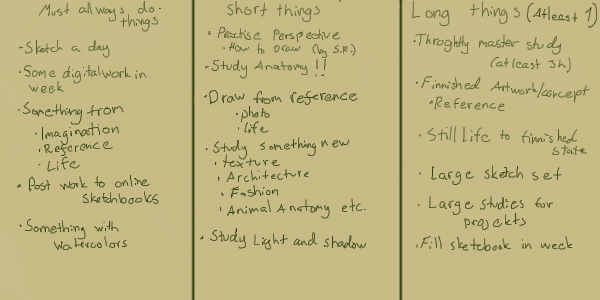 Must allways do
things
• Sketch a day
• Some digitalwork in
week
• Something from
• Imagination
• Reference
• Life
• Post work to online
Sketchbooks
• Something with
watercolors
short things
• Practise Perspective
• How to Draw (by S.R.)
• Study Anatomy !!
• Draw from reference
• photo
• life
• Study something new
• texture
• Architecture
• Fashion
• Animal Anatomy etc.
• Study Light and shadow
Long things (Atleast 1)
• Throghtly master study
(atleast 3h)
• Finnished Artwork/concept
• Reference
• Still life to finnished
state
• Large sketch set
• Large studies for
projekts
• Fill sketchbook in week